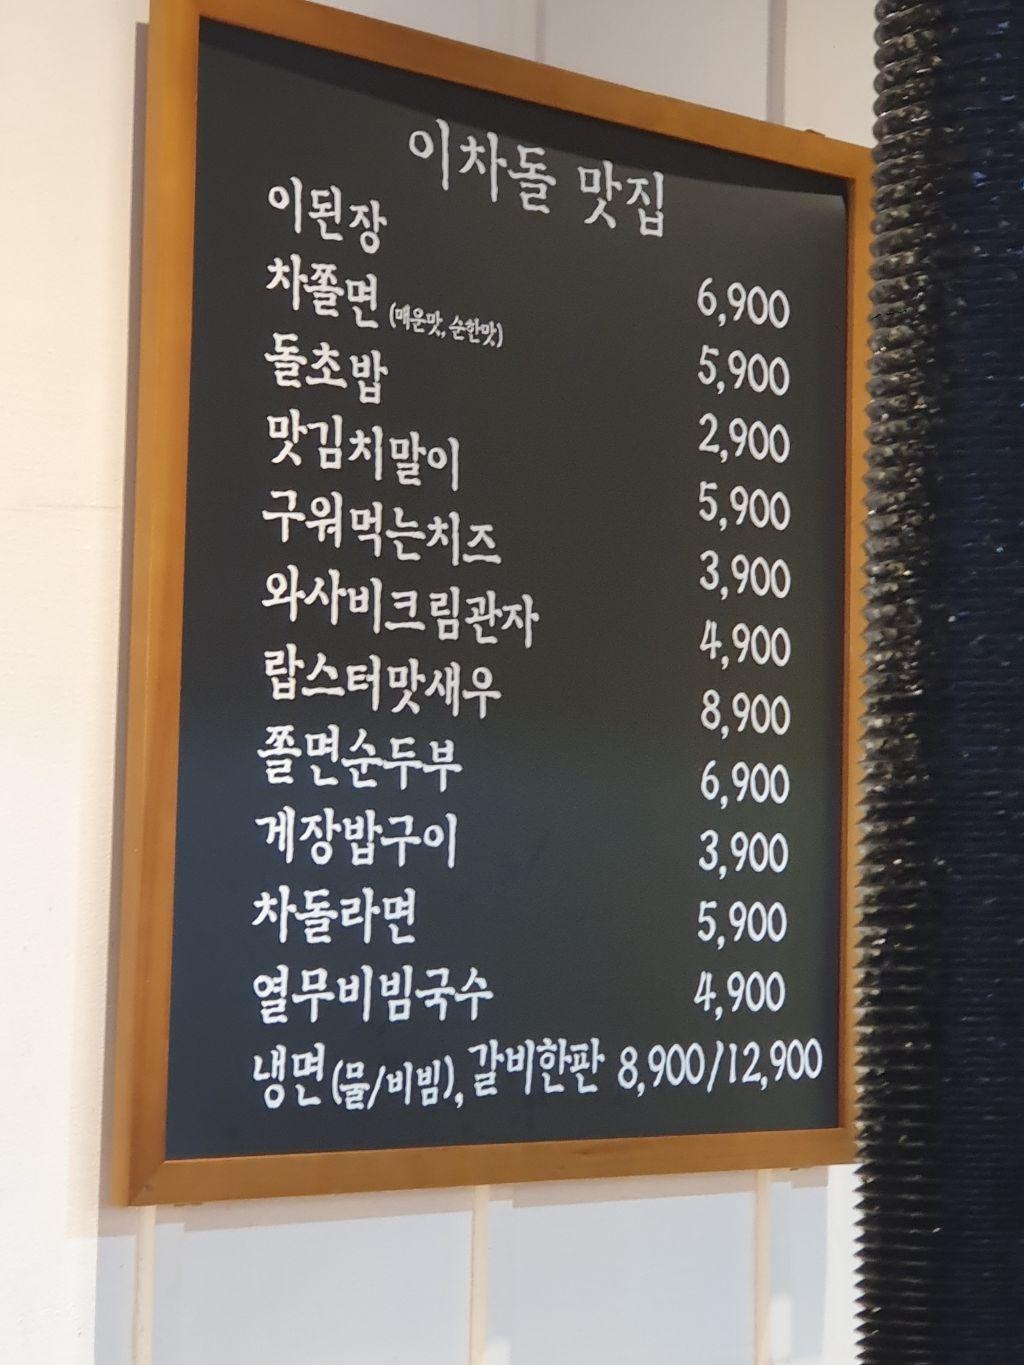 이차돌 맛집
이된장 6,900
차쫄면 (매운맛, 순한맛) 5,900
돌초밥 2,900
맛김치말이 5,900
구워먹는치즈 3,900
와사비크림관자 4,900
랍스터맛새우 8,900
쫄면순두부 6,900
게장밥구이 3,900
차돌라면 5,900
열무비빔국수 4,900
냉면(물/비빔), 갈비한판 8,900/12,900